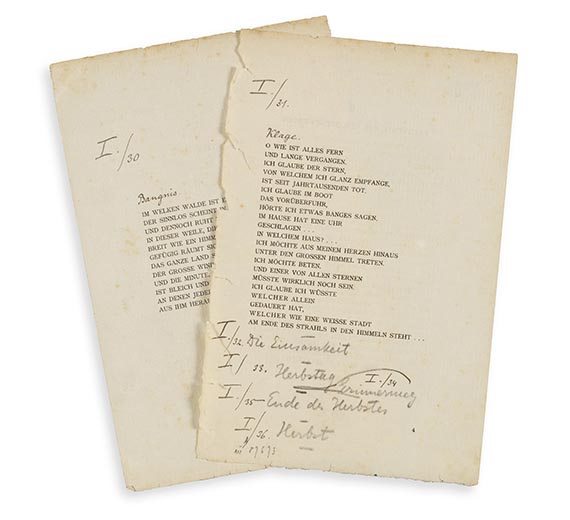 I./30
Bangnis.
IM WELKEN WALDE IST E
DER SINNLOS SCHEINT
UND DENNOCH RUHT
IN DIESER WEILE, DIE
BREIT WIE EIN HIMME
GEFÜGIG RÄUMT SIC
DAS GANZE LAND S
DER GROSSE WIND
UND DIE MINUTE,
IST BLEICH UND
AN DENEN JEDER
AUS IHM HERAU
I./31.
Klage.
O WIE IST ALLES FERN
UND LANGE VERGANGEN.
ICH GLAUBE DER STERN,
VON WELCHEM ICH GLANZ EMPFANGE,
IST SEIT JAHRTAUSENDEN TOT.
ICH GLAUBE IM BOOT
DAS VORÜBERFUHR,
HÖRTE ICH ETWAS BANGES SAGEN.
IM HAUSE HAT EINE UHR
GESCHLAGEN . . .
IN WELCHEM HAUS? . . .
ICH MÖCHTE AUS MEINEM HERZEN HINAUS
UNTER DEN GROSSEN HIMMEL TRETEN.
ICH MÖCHTE BETEN.
UND EINER VON ALLEN STERNEN
MÜSSTE WIRKLICH NOCH SEIN.
ICH GLAUBE ICH WÜSSTE
WELCHER ALLEIN
GEDAUERT HAT,
WELCHER WIE EINE WEISSE STADT
AM ENDE DES STRAHLS IN DEN HIMMELN STEHT . . .
I./32. Die Einsamkeit
I./33. Herbsttag
I./34
Erinnerung
I./35 Ende des Herbstes
I./36. Herbst